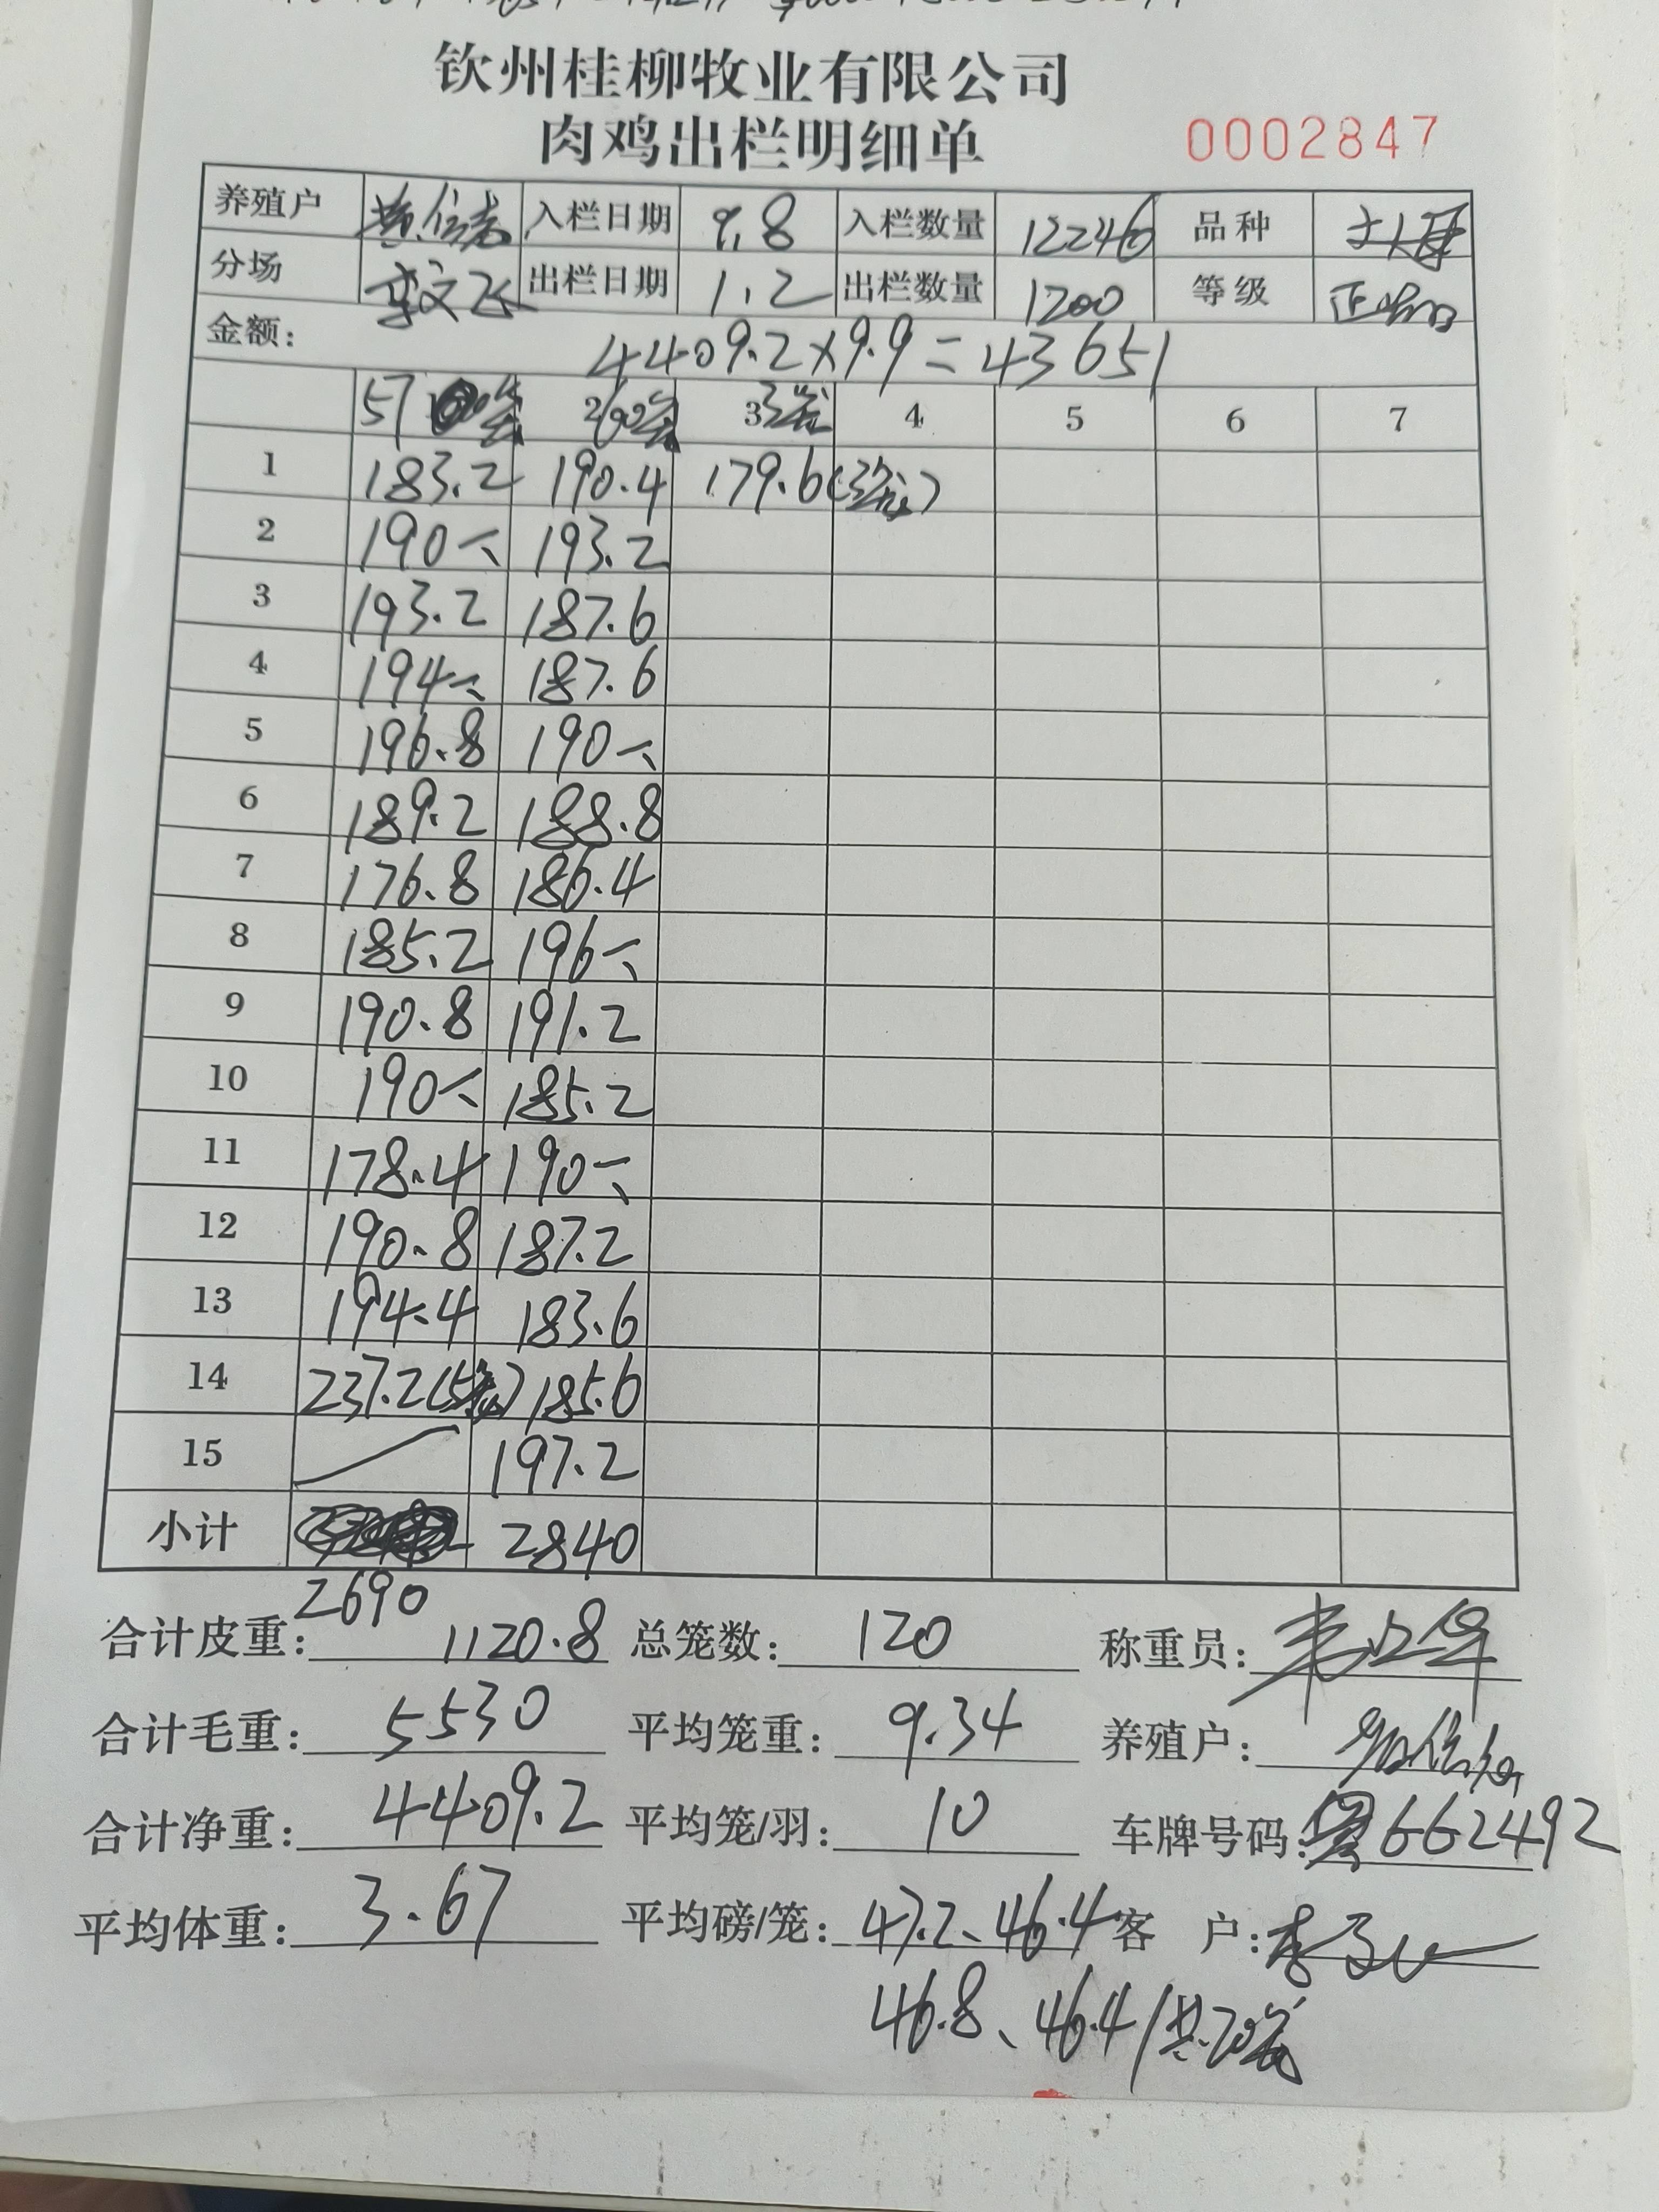 钦州桂柳牧业有限公司
肉鸡出栏明细单 0002847
养殖户 入栏日期 9.8 入栏数量 12246 品种
分场 李文飞 出栏日期 1.2 出栏数量 1200 等级 正常
金额: 4409.2×9.9=43651
57 2 60笼 3 3笼 4 5 6 7
1 183.2 190.4 179.6(3笼)
2 190 193.2
3 193.2 187.6
4 194 187.6
5 196.8 190
6 189.2 188.8
7 176.8 186.4
8 185.2 196
9 190.8 191.2
10 190 185.2
11 178.4 190
12 190.8 187.2
13 194.4 183.6
14 237.2(5笼) 185.6
15 197.2
小计 2840
2690
合计皮重: 1120.8 总笼数: 120 称重员:
合计毛重: 5530 平均笼重: 9.34 养殖户:
合计净重: 4409.2 平均笼/羽: 10 车牌号码: 662492
平均体重: 3.67 平均磅/笼: 47.2、46.4 客 户:
46.8、46.4/共20笼